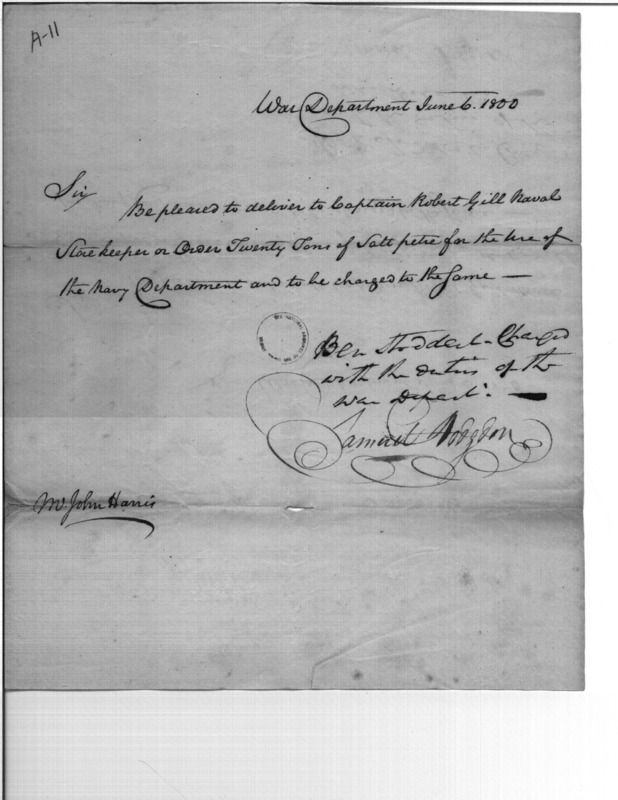 A-11
War Department June 6. 1800
Sir
Be pleased to deliver to Captain Robert Gill Naval
Store keeper or Order Twenty Tons of Salt petre for the Use of
the Navy Department and to be charged to the Same —
Ben Stoddert - Charged
with the duties of the
War Departt. —
Samuel Hodgdon
Mr. John Harris